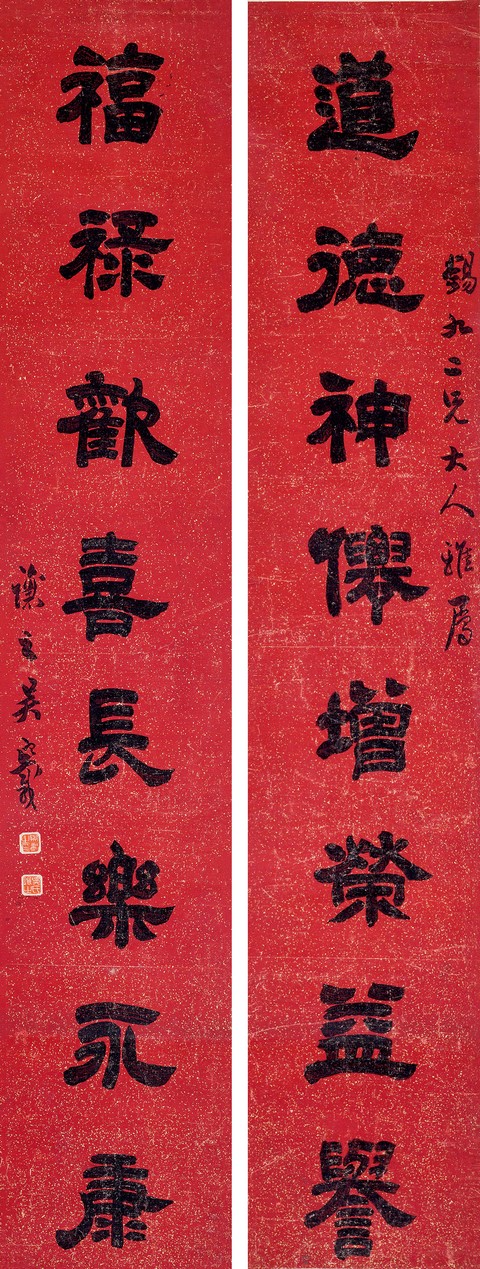 錫九二兄大人雅屬
道德神僊增榮益譽
福祿歡喜長樂永康
讓之吳熙載